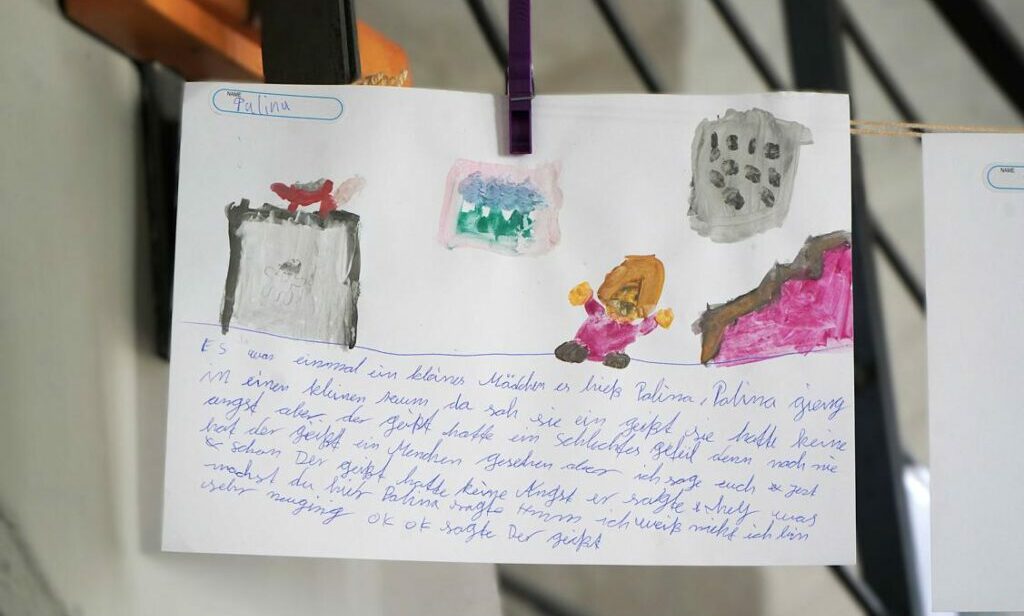 NAME
Palina
NAME
Es war einmal ein kleines Mädchen es hieß Palina, Palina gieng
in einen kleinen raum da sah sie ein geißt sie hatte keine
angst aber der geißt hatte ein schlechtes gefül denn noch nie
hat der geißt ein Menchen gesehen aber ich sage euch jest
schon Der geißt hatte keine Angst er sagte hey was
machst du hir Palina sagte Hmm ich weiß nicht ich bin
sehr neuging ok ok sagte Der geißt